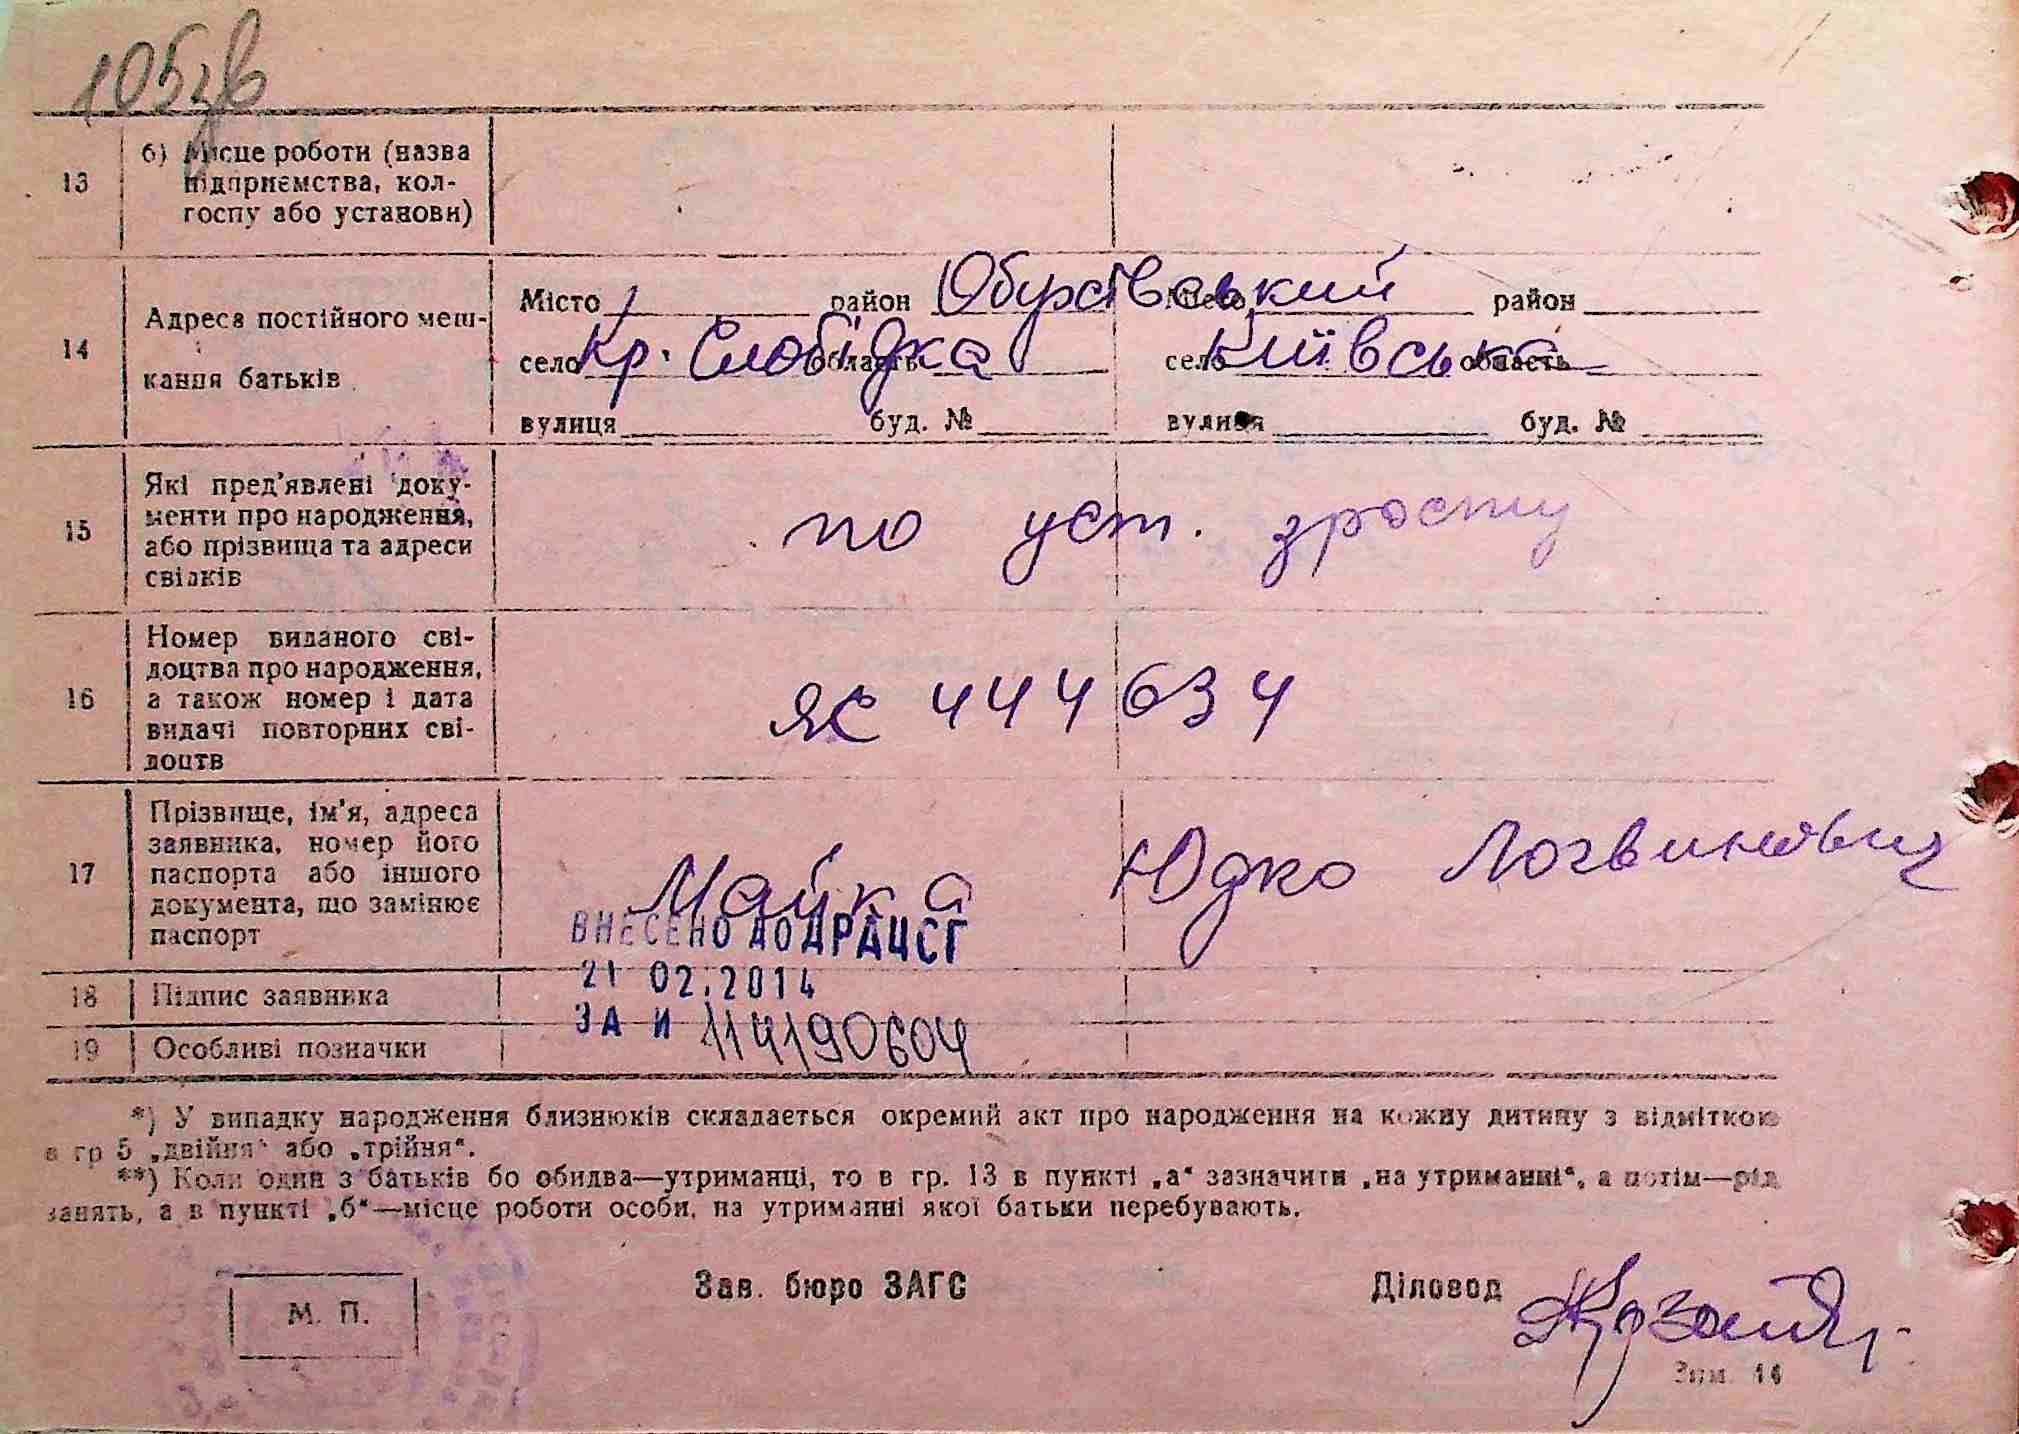 105зв
13
б) Місце роботи (назва
підприємства, кол-
госпу або установи)
14
Адреса постійного меш-
кання батьків
Місто район Обухівський Місто район
село Кр. Слобідка область село Київська область
вулиця буд. № вулиця буд. №
15
Які пред'явлені доку-
менти про народження,
або прізвища та адреси
свідків
по уст. зросту
16
Номер виданого сві-
доцтва про народження,
а також номер і дата
видачі повторних сві-
доцтв
ЯС 444634
17
Прізвище, ім'я, адреса
заявника, номер його
паспорта або іншого
документа, що замінює
паспорт
Майка Юдко Логвинович
ВНЕСЕНО ДО ДРАЦСГ
21 02.2014
ЗА И 114190604
18 Підпис заявника
19 Особливі позначки
*) У випадку народження близнюків складається окремий акт про народження на кожну дитину з відміткою
в гр 5 „двійня“ або „трійня“.
**) Коли один з батьків бо обидва—утриманці, то в гр. 13 в пункті „а“ зазначити „на утриманні“, а потім—рід
занять, а в пункті „б“—місце роботи особи, на утриманні якої батьки перебувають.
М. П.
Зав. бюро ЗАГС
Діловод
Зам. 14